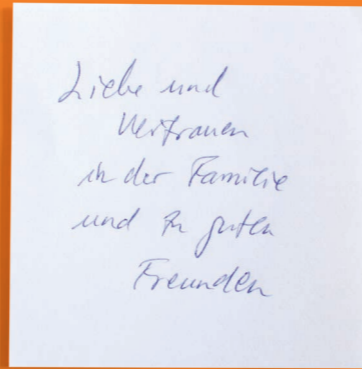 Liebe und
Vertrauen
in der Familie
und zu guten
Freunden